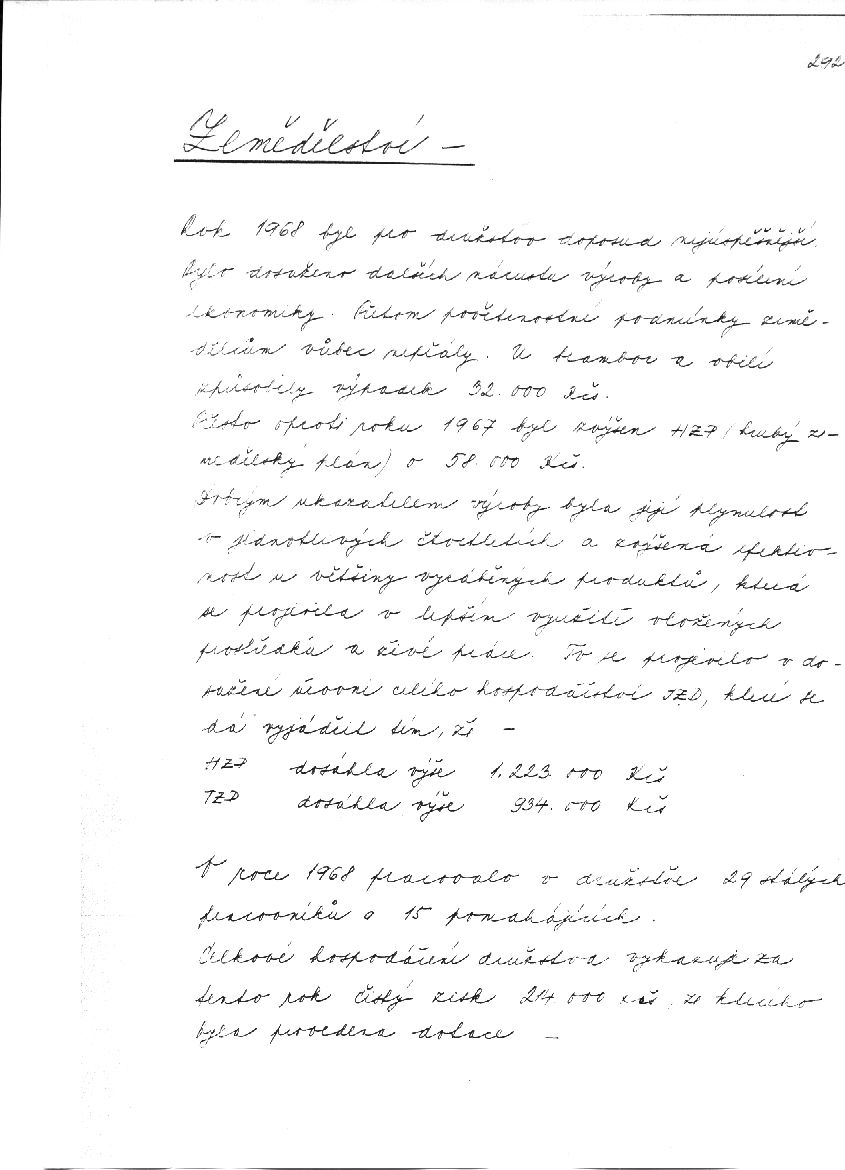 292
Zemědělství –
Rok 1968 byl pro družstvo doposud nejúspěšnější.
Bylo dosaženo dalších nárustu výroby a posílení
ekonomiky. Přitom povětrnostní podmínky země-
dělcům vůbec nepřály. U brambor a obilí
způsobily výpadek 32.000 Kčs.
Přesto oproti roku 1967 byl zvýšen HZP (hrubý ze-
mědělský plán) o 58.000 Kčs.
Dobrým ukazatelem výroby byla její plynulost
v jednotlivých čtvrtletích a zvýšená efektiv-
nost u většiny vyráběných produktů, která
se projevila v lepším využití vložených
prostředků a živé práce. To se projevilo v do-
sažení úrovní celého hospodářství JZD, které se
dá vyjádřit tím, že –
HZP dosáhla výše 1.223.000 Kčs
TZP dosáhla výše 934.000 Kčs
V roce 1968 pracovalo v družstvu 29 stálých
pracovníků a 15 pomahájících.
Celkové hospodaření družstva vykazuje za
tento rok čistý zisk 214 000 Kčs, ze kterého
byla provedena dotace –